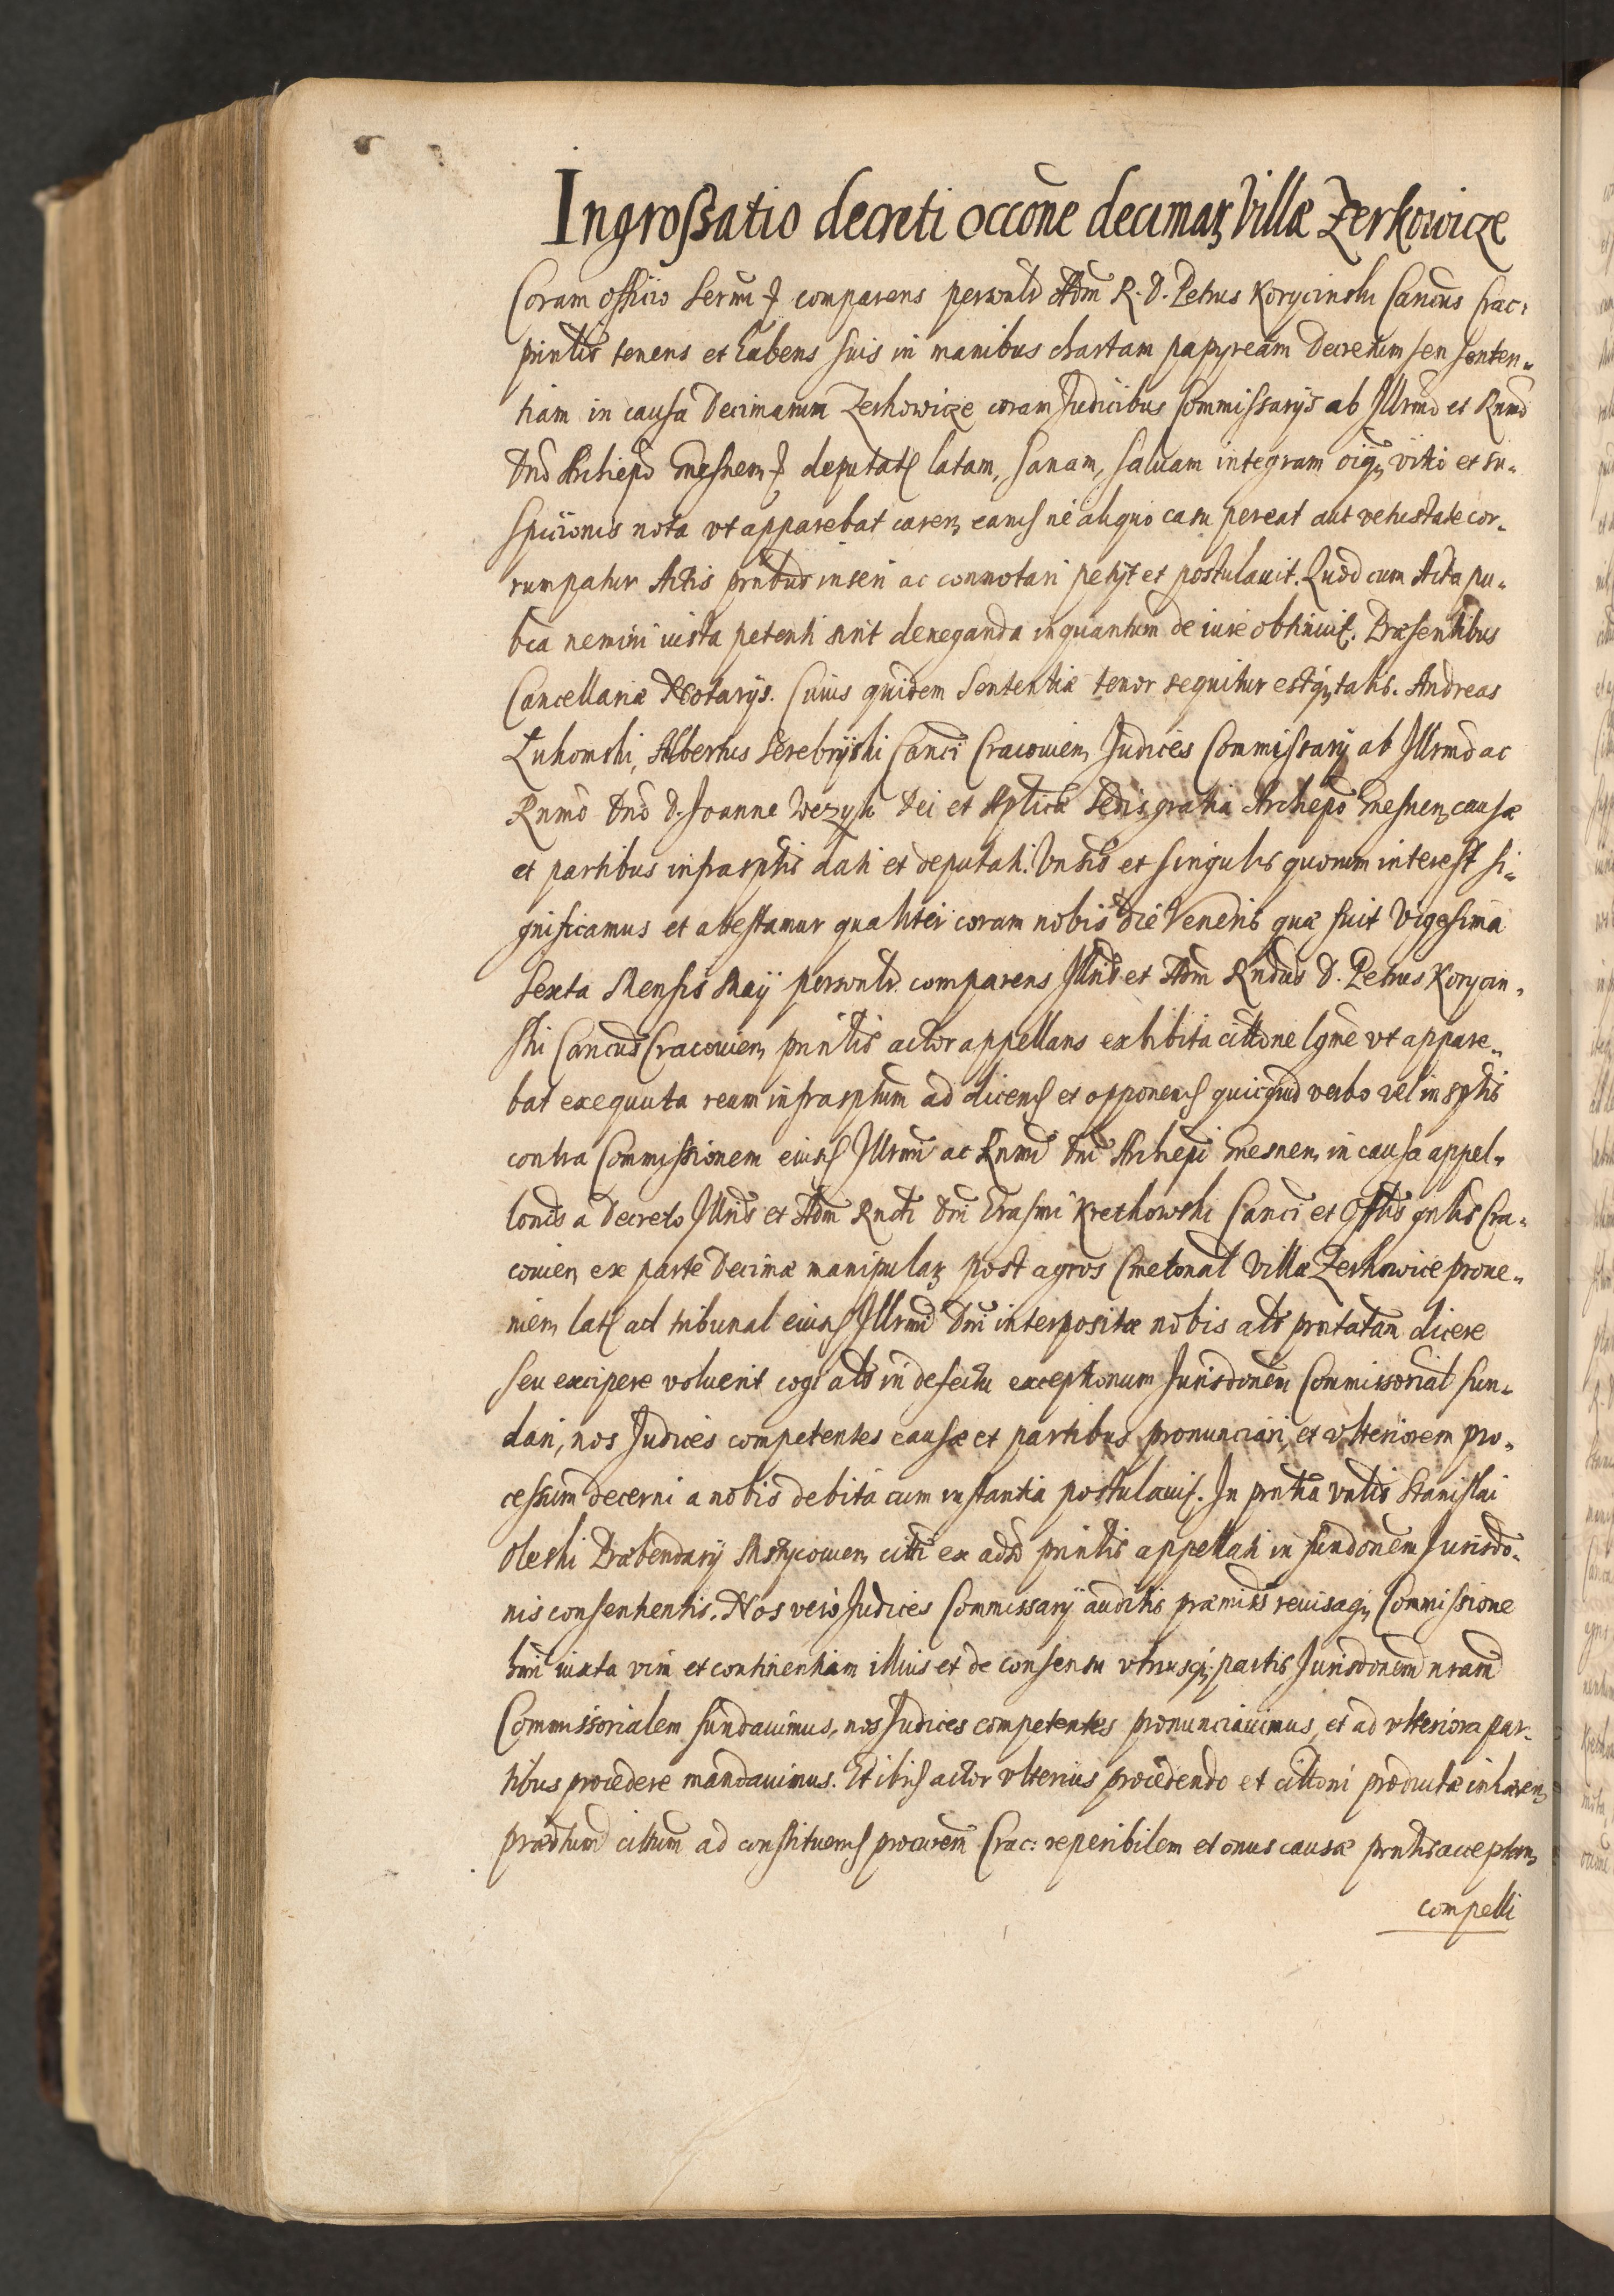 Ingrossatio decreti occone decimaꝝ Villæ Zerkowicze
Coram officio Sermi &c comparens personlr Adm R. D. Petrus Korycinski Cancus Crac:
pnntis tenens et habens suis in manibus chartam papyream Decretum seu senten„
tiam in causa Decimarum Zerkowicze coram Judicibus Commissarijs ab Illrmo et Rnmo
Dno Archiepo Gnesnen &c deputatꝭ latam, sanam, saluam integram oiqꝫ vitio et su„
spicionis nota vt apparebat caren, eamꝭ ne aliquo casu pereat aut vetustate cor„
rumpatur Actis pntbus inseri ac connotari petijt et postulauit. Quod cum Acta pu„
bca nemini iusta petenti sint deneganda inquantum de iure obtinuit. Præsentibus
Cancellariæ Notarijs. Cuius quidem Sententiæ tenor sequitur estqꝫ talis. Andreas
Lukomski, Albertus Serebryski Canci Cracouien, Judices Commissarij ab Illrmo ac
Rnmo Dno D. Joanne Wezyk Dei et Aplicæ Sedis gratia Archiepo Gnesnen, causæ
et partibus infrasptis dati et deputati. Vnsis et singulis quorum interest si„
gnificamus et attestamur qualiter coram nobis die Veneris quæ fuit Vigesima
Sexta Mensis Maij personlr comparens Illris et Adm Rndus D. Petrus Korycin„
ski Cancus Cracouien, pnntis actor appellans exhibita cittone lgme vt appare„
bat exequuta reum infrasptum ad dicenꝭ et opponenꝭ quicqud verbo vel in sptis
contra Commissionem eiusꝭ Illrmi ac Rnmi Dni Archiepi Gnesnen, in causa appel„
lonis a Decreto Illris et Adm Rndi Dni Erasmi Kretkowski Canci et Offlis gnlis Cra„
couien, ex parte Decimæ manipulaꝝ post agros Cmetonal Villæ Zerkowice proue„
nien, latꝭ ad tribunal eiusꝭ Illrmi Dni interpositæ nobis als pntatam dicere
seu excipere voluerit cogi als in defectu exceptionum Jurisdonem Commissorial fun„
dari, nos Judices competentes causæ et partibus pronunciari, et vlteriorem pro„
cessum decerni a nobis debita cum instantia postulauit. In pntia vnlis Stanislai
Oleski Præbendarij Mstycouien, citti ex adso pnntis appellati in fundonem Jurisdo„
nis consentientis. Nos vero Judices Commissarij auditis præmiss reuisaqꝫ Commissione
hmi iuxta vim et continentiam illius et de consensu vtriusqꝫ partis Jurisdonem nram
Commissorialem fundauimus, nos Judices competentes pronunciauimus, et ad vlteriora par„
tibus procedere mandauimus. Et ibisꝭ actor vlterius procedendo et cittoni productæ inhæren,
prædtum cittum ad constituenꝭ procurem Crac: reperibilem et onus causæ pntis acceptan,
compelli